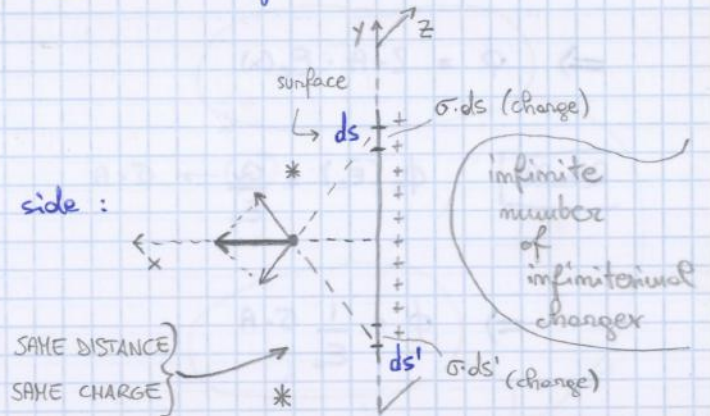 y z
surface
σ.ds (charge)
ds
*
infinite
number
of
infinitesimal
charges
side :
x
SAME DISTANCE
SAME CHARGE
*
ds'
σ.ds' (charge)